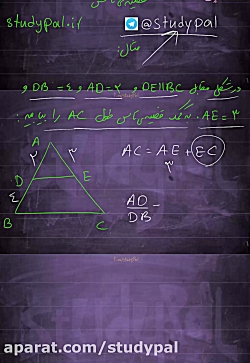 studypal.ir @studypal
مثال:
در شکل مقابل DE||BC و AD=۲ و DB=۴ و
AE=۳. به کمک قضیه تالس طول AC را بیابید.
A
۲ ۳
D E
۴
B C
AC = AE + EC
۳
AD
DB =
aparat.com/studypal